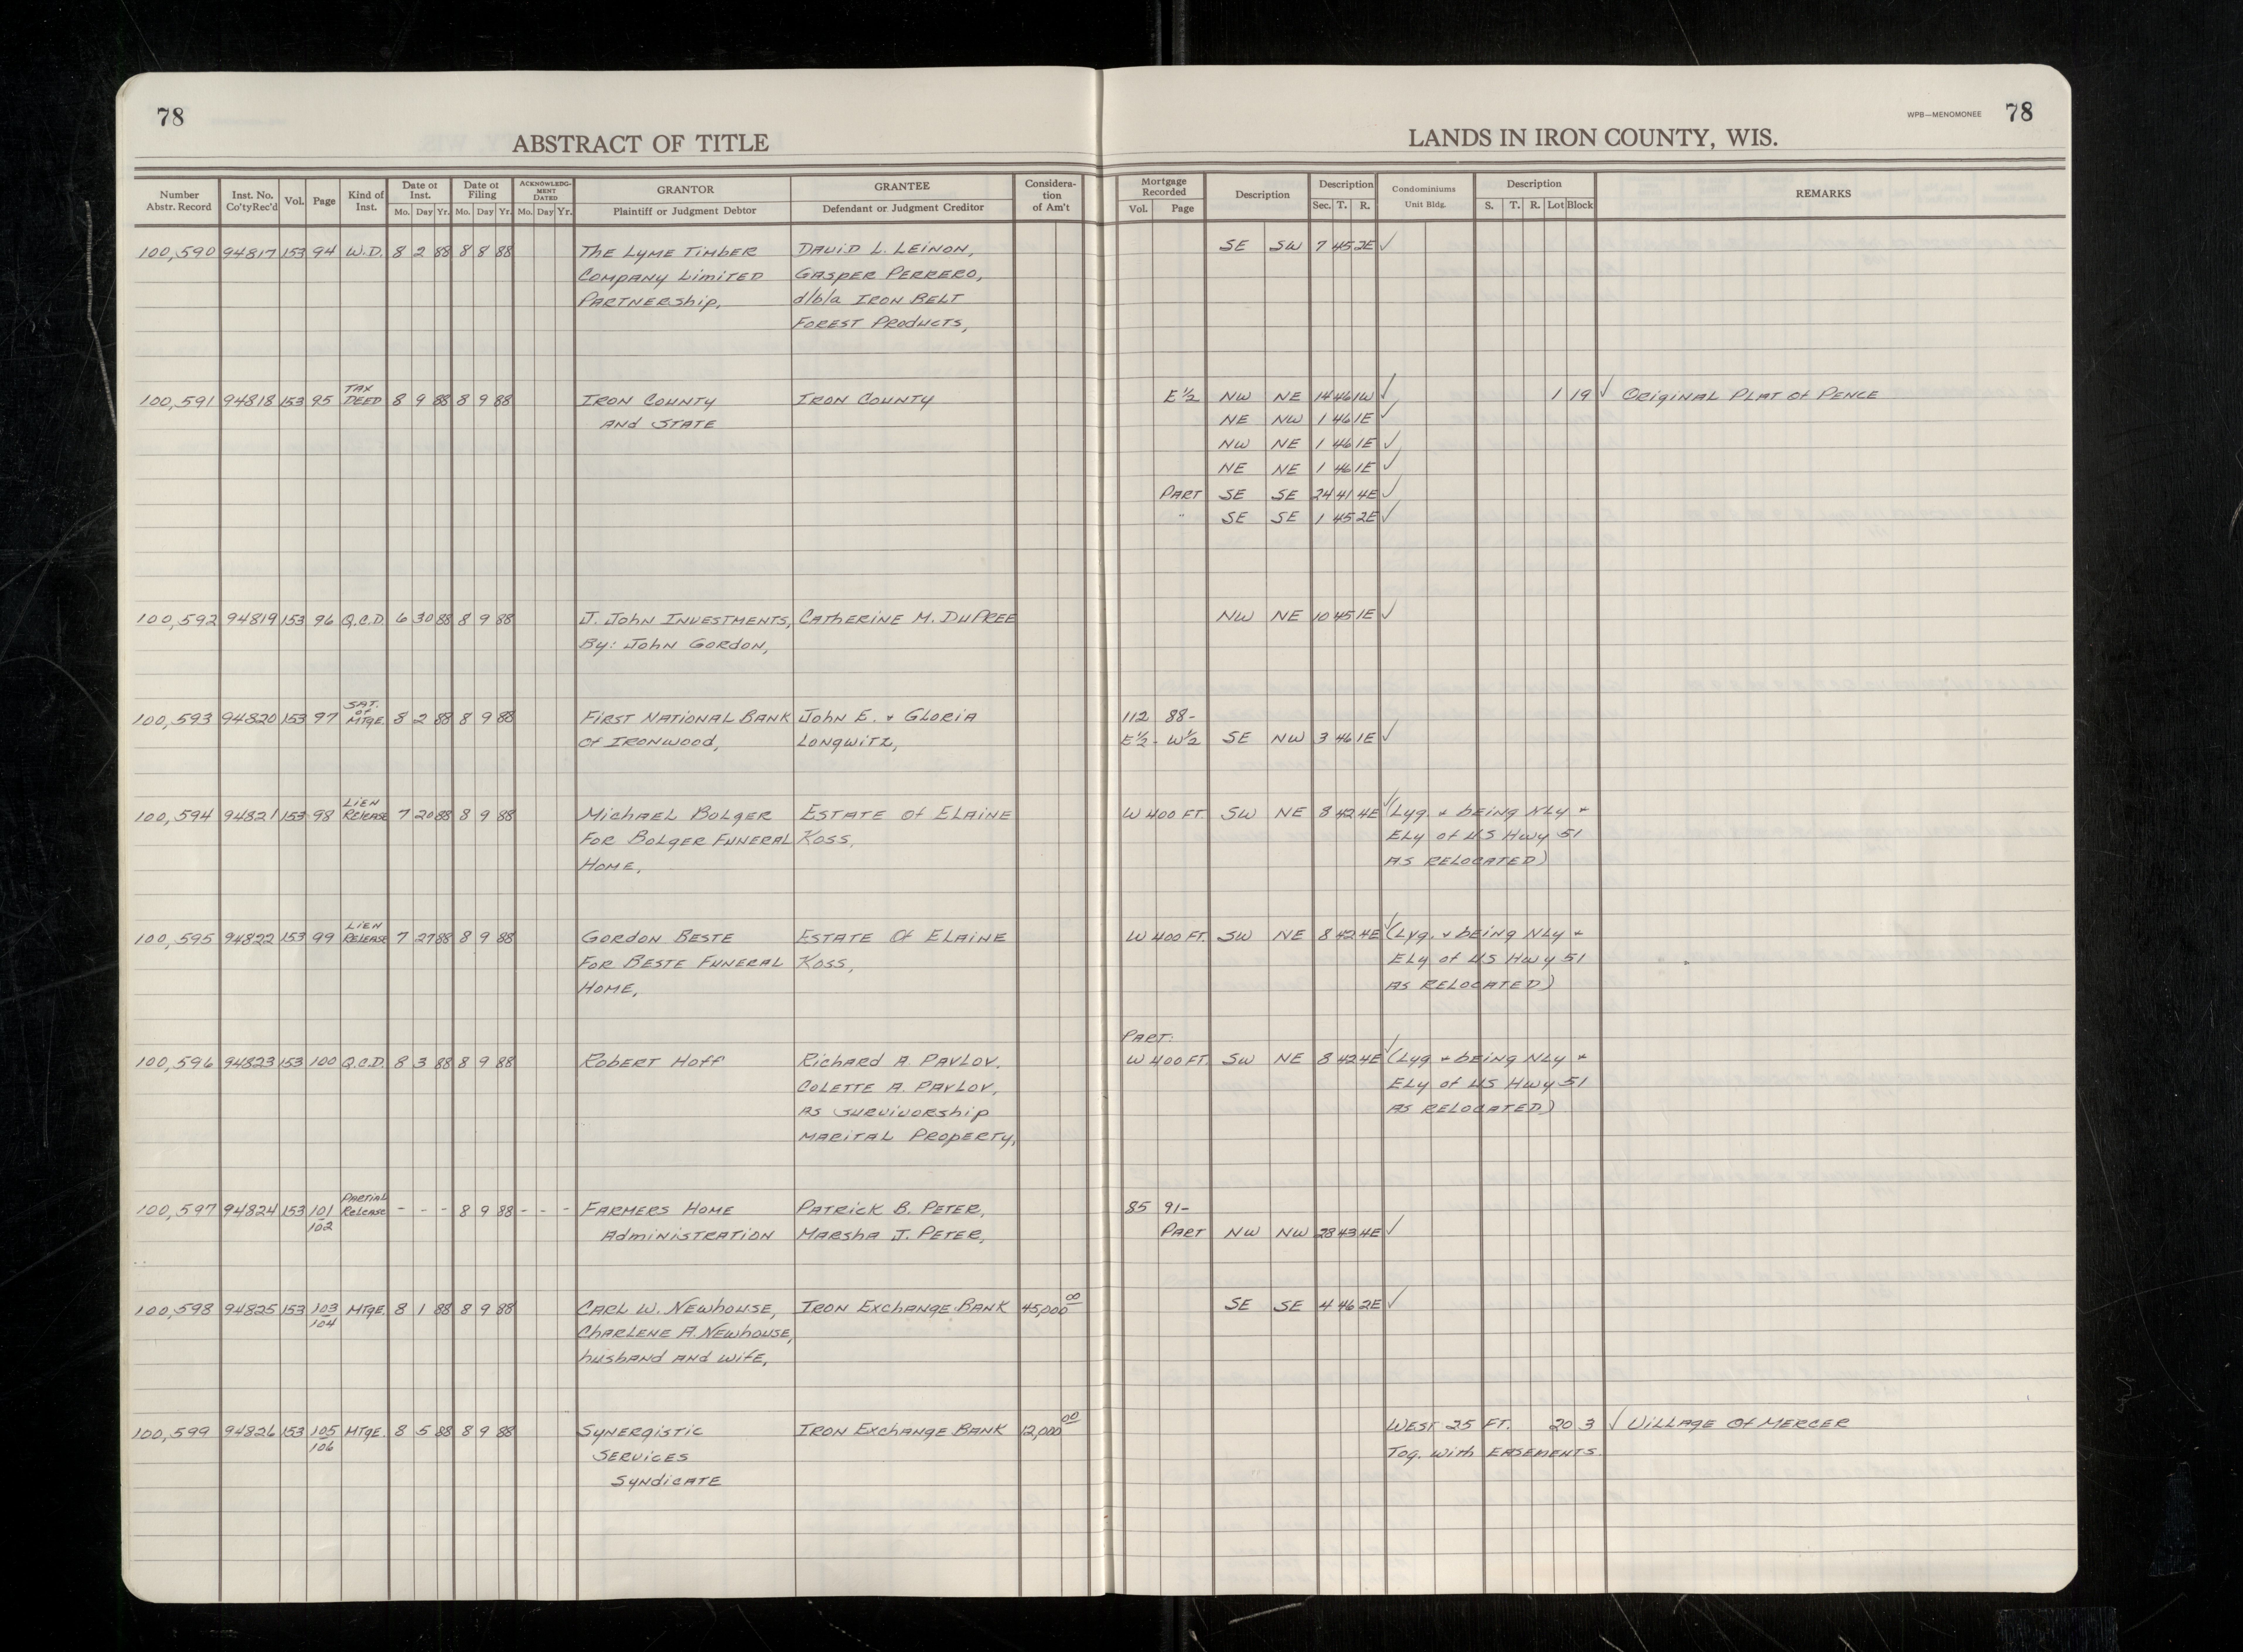 78
ABSTRACT OF TITLE
LANDS IN IRON COUNTY, WIS.
WPB—MENOMONEE 78
Number Abstr. Record Inst. No. Co'tyRec'd Vol. Page Kind of Inst. Date of Inst. Mo. Day Yr. Date of Filing Mo. Day Yr. ACKNOWLEDG-MENT DATED Mo. Day Yr. GRANTOR Plaintiff or Judgment Debtor GRANTEE Defendant or Judgment Creditor Considera-tion of Am't Mortgage Recorded Vol. Page Description Description Sec. T. R. Condominiums Unit Bldg. Description S. T. R. Lot Block REMARKS
100,590 94817 153 94 W.D. 8 2 88 8 8 88 The Lyme Timber David L. Leinon, SE SW 7 45 2E ✓
Company Limited Gasper Perrero,
Partnership, d/b/a Iron Belt
Forest Products,
100,591 94818 153 95 Tax Deed 8 9 88 8 9 88 Iron County Iron County E½ NW NE 14 46 1W ✓ 1 19 ✓ Original Plat of Pence
and State NE NW 1 46 1E ✓
NW NE 1 46 1E ✓
NE NE 1 46 1E ✓
Part SE SE 24 41 4E ✓
" SE SE 1 45 2E ✓
100,592 94819 153 96 Q.C.D. 6 30 88 8 9 88 J. John Investments, Catherine M. DuPree NW NE 10 45 1E ✓
By: John Gordon,
100,593 94820 153 97 Sat. of Mtge. 8 2 88 8 9 88 First National Bank John E. + Gloria 112 88-
of Ironwood, Longwitz, E½ - W½ SE NW 3 46 1E ✓
100,594 94821 153 98 Lien Release 7 20 88 8 9 88 Michael Bolger Estate of Elaine W 400 FT. SW NE 8 42 4E ✓ (Lyg. + being NLy +
For Bolger Funeral Koss, ELy of US Hwy 51
Home, as relocated)
100,595 94822 153 99 Lien Release 7 27 88 8 9 88 Gordon Beste Estate of Elaine W 400 FT. SW NE 8 42 4E ✓ (Lyg. + being NLy +
For Beste Funeral Koss, ELy of US Hwy 51
Home, as relocated)
Part:
100,596 94823 153 100 Q.C.D. 8 3 88 8 9 88 Robert Hoff Richard A. Pavlov, W 400 FT. SW NE 8 42 4E ✓ (Lyg + being NLy +
Colette A. Pavlov, ELy of US Hwy 51
as survivorship as relocated)
marital property,
100,597 94824 153 101 102 Partial Release - - - 8 9 88 - - - Farmers Home Patrick B. Peter, 85 91-
Administration Marsha J. Peter, Part NW NW 28 43 4E ✓
100,598 94825 153 103 104 Mtge. 8 1 88 8 9 88 Carl W. Newhouse, Iron Exchange Bank 45,000 00 SE SE 4 46 2E ✓
Charlene A. Newhouse,
husband and wife,
100,599 94826 153 105 106 Mtge. 8 5 88 8 9 88 Synergistic Iron Exchange Bank 12,000 00 West 25 FT. 20 3 ✓ Village of Mercer
Services Tog. with easements.
Syndicate